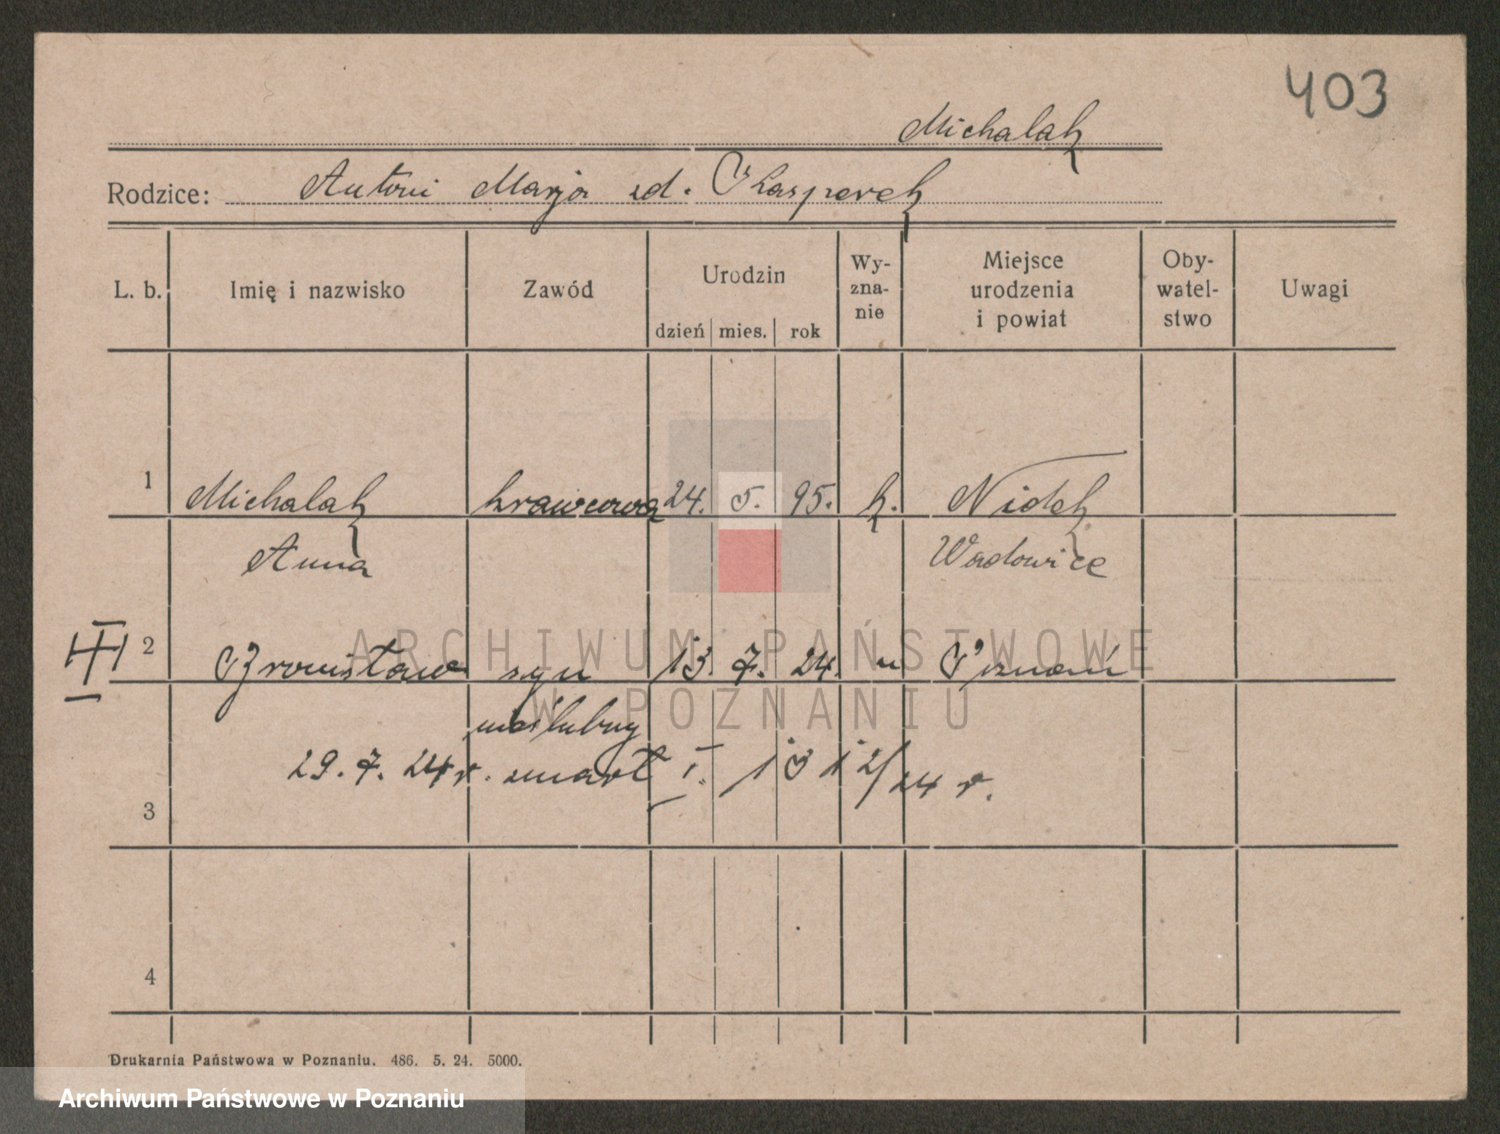 403
Michalak
Rodzice: Antoni Marja zd. Kasperek
L. b. Imię i nazwisko Zawód Urodzin dzień mies. rok Wy-zna-nie Miejsce urodzenia i powiat Oby-watel-stwo Uwagi
1 Michalak krawcowa 24. 5. 95. k. Nidek
Anna Wadowice
2 Bronisław syn 13. 7. 24. " Poznań
nieślubny
29. 7. 24 r. zmarł I. 1312/24 r.
3
4
ARCHIWUM PAŃSTWOWE
W POZNANIU
Drukarnia Państwowa w Poznaniu. 486. 5. 24. 5000.
Archiwum Państwowe w Poznaniu